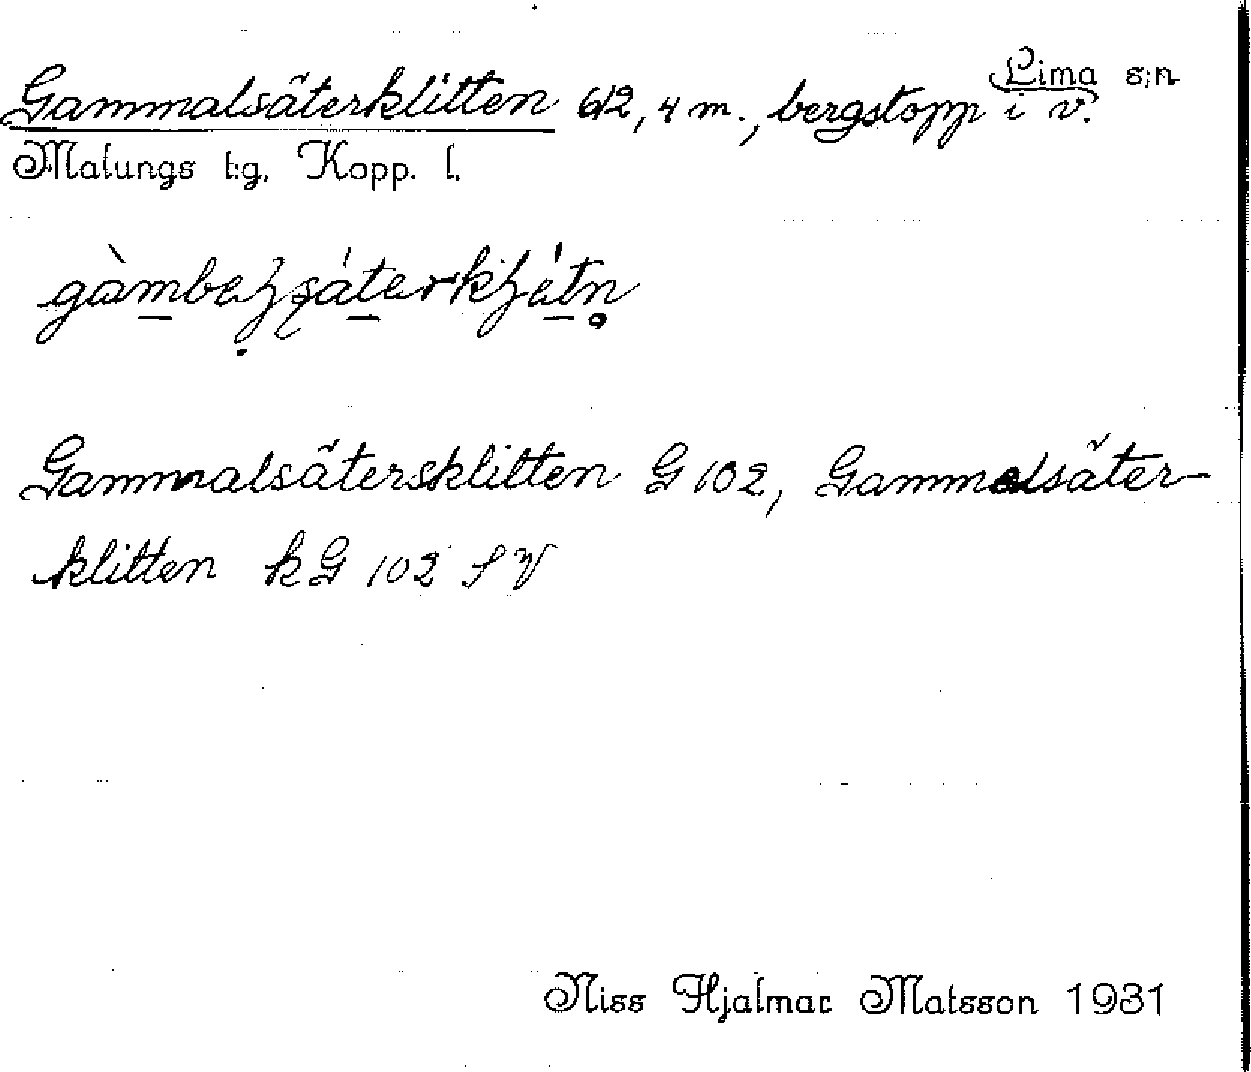 Gammalsäterklitten 612,4 m., bergstopp i v. Lima s:n
Malungs t:g. Kopp. l.
Gammalsätersklitten G 102, Gammalsäter-
klitten kG 102 SV
Niss Hjalmar Matsson 1931